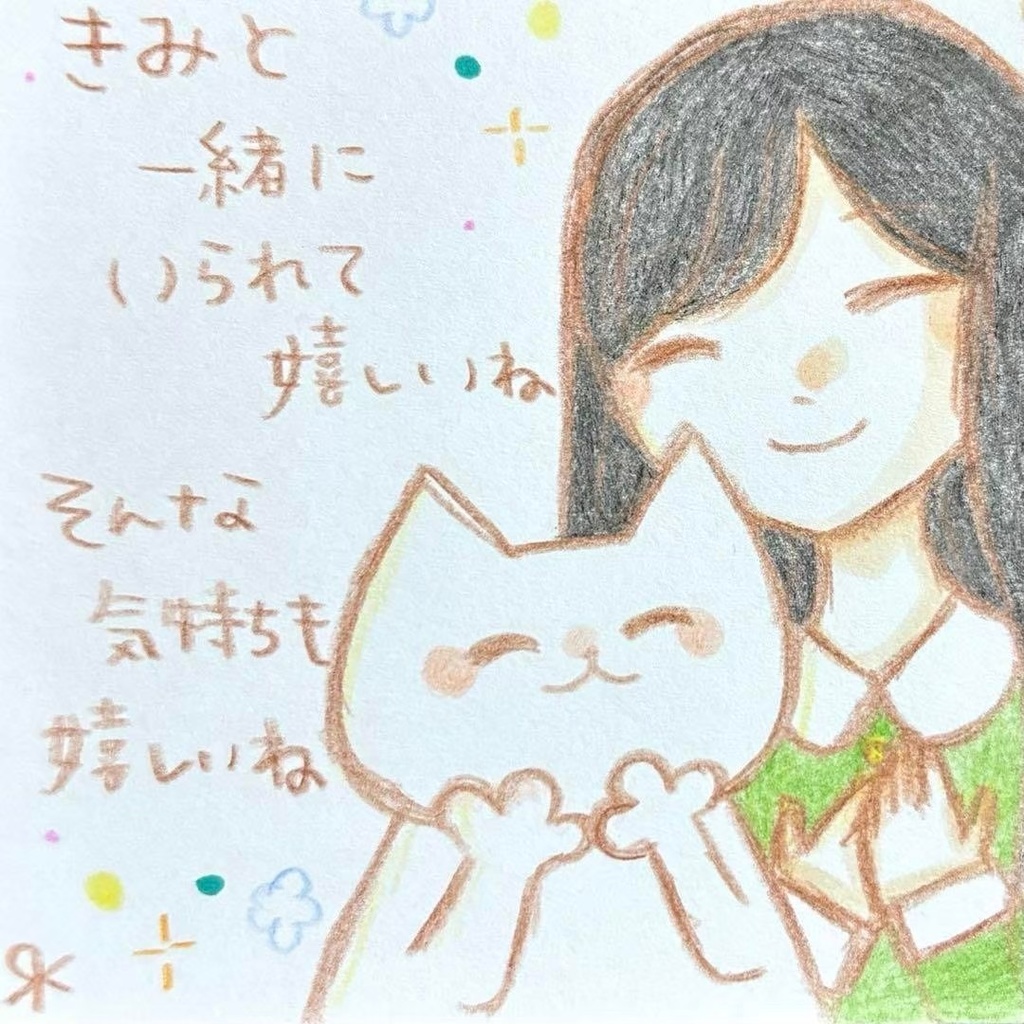 きみと
一緒に
いられて
嬉しいね
そんな
気持ちも
嬉しいね